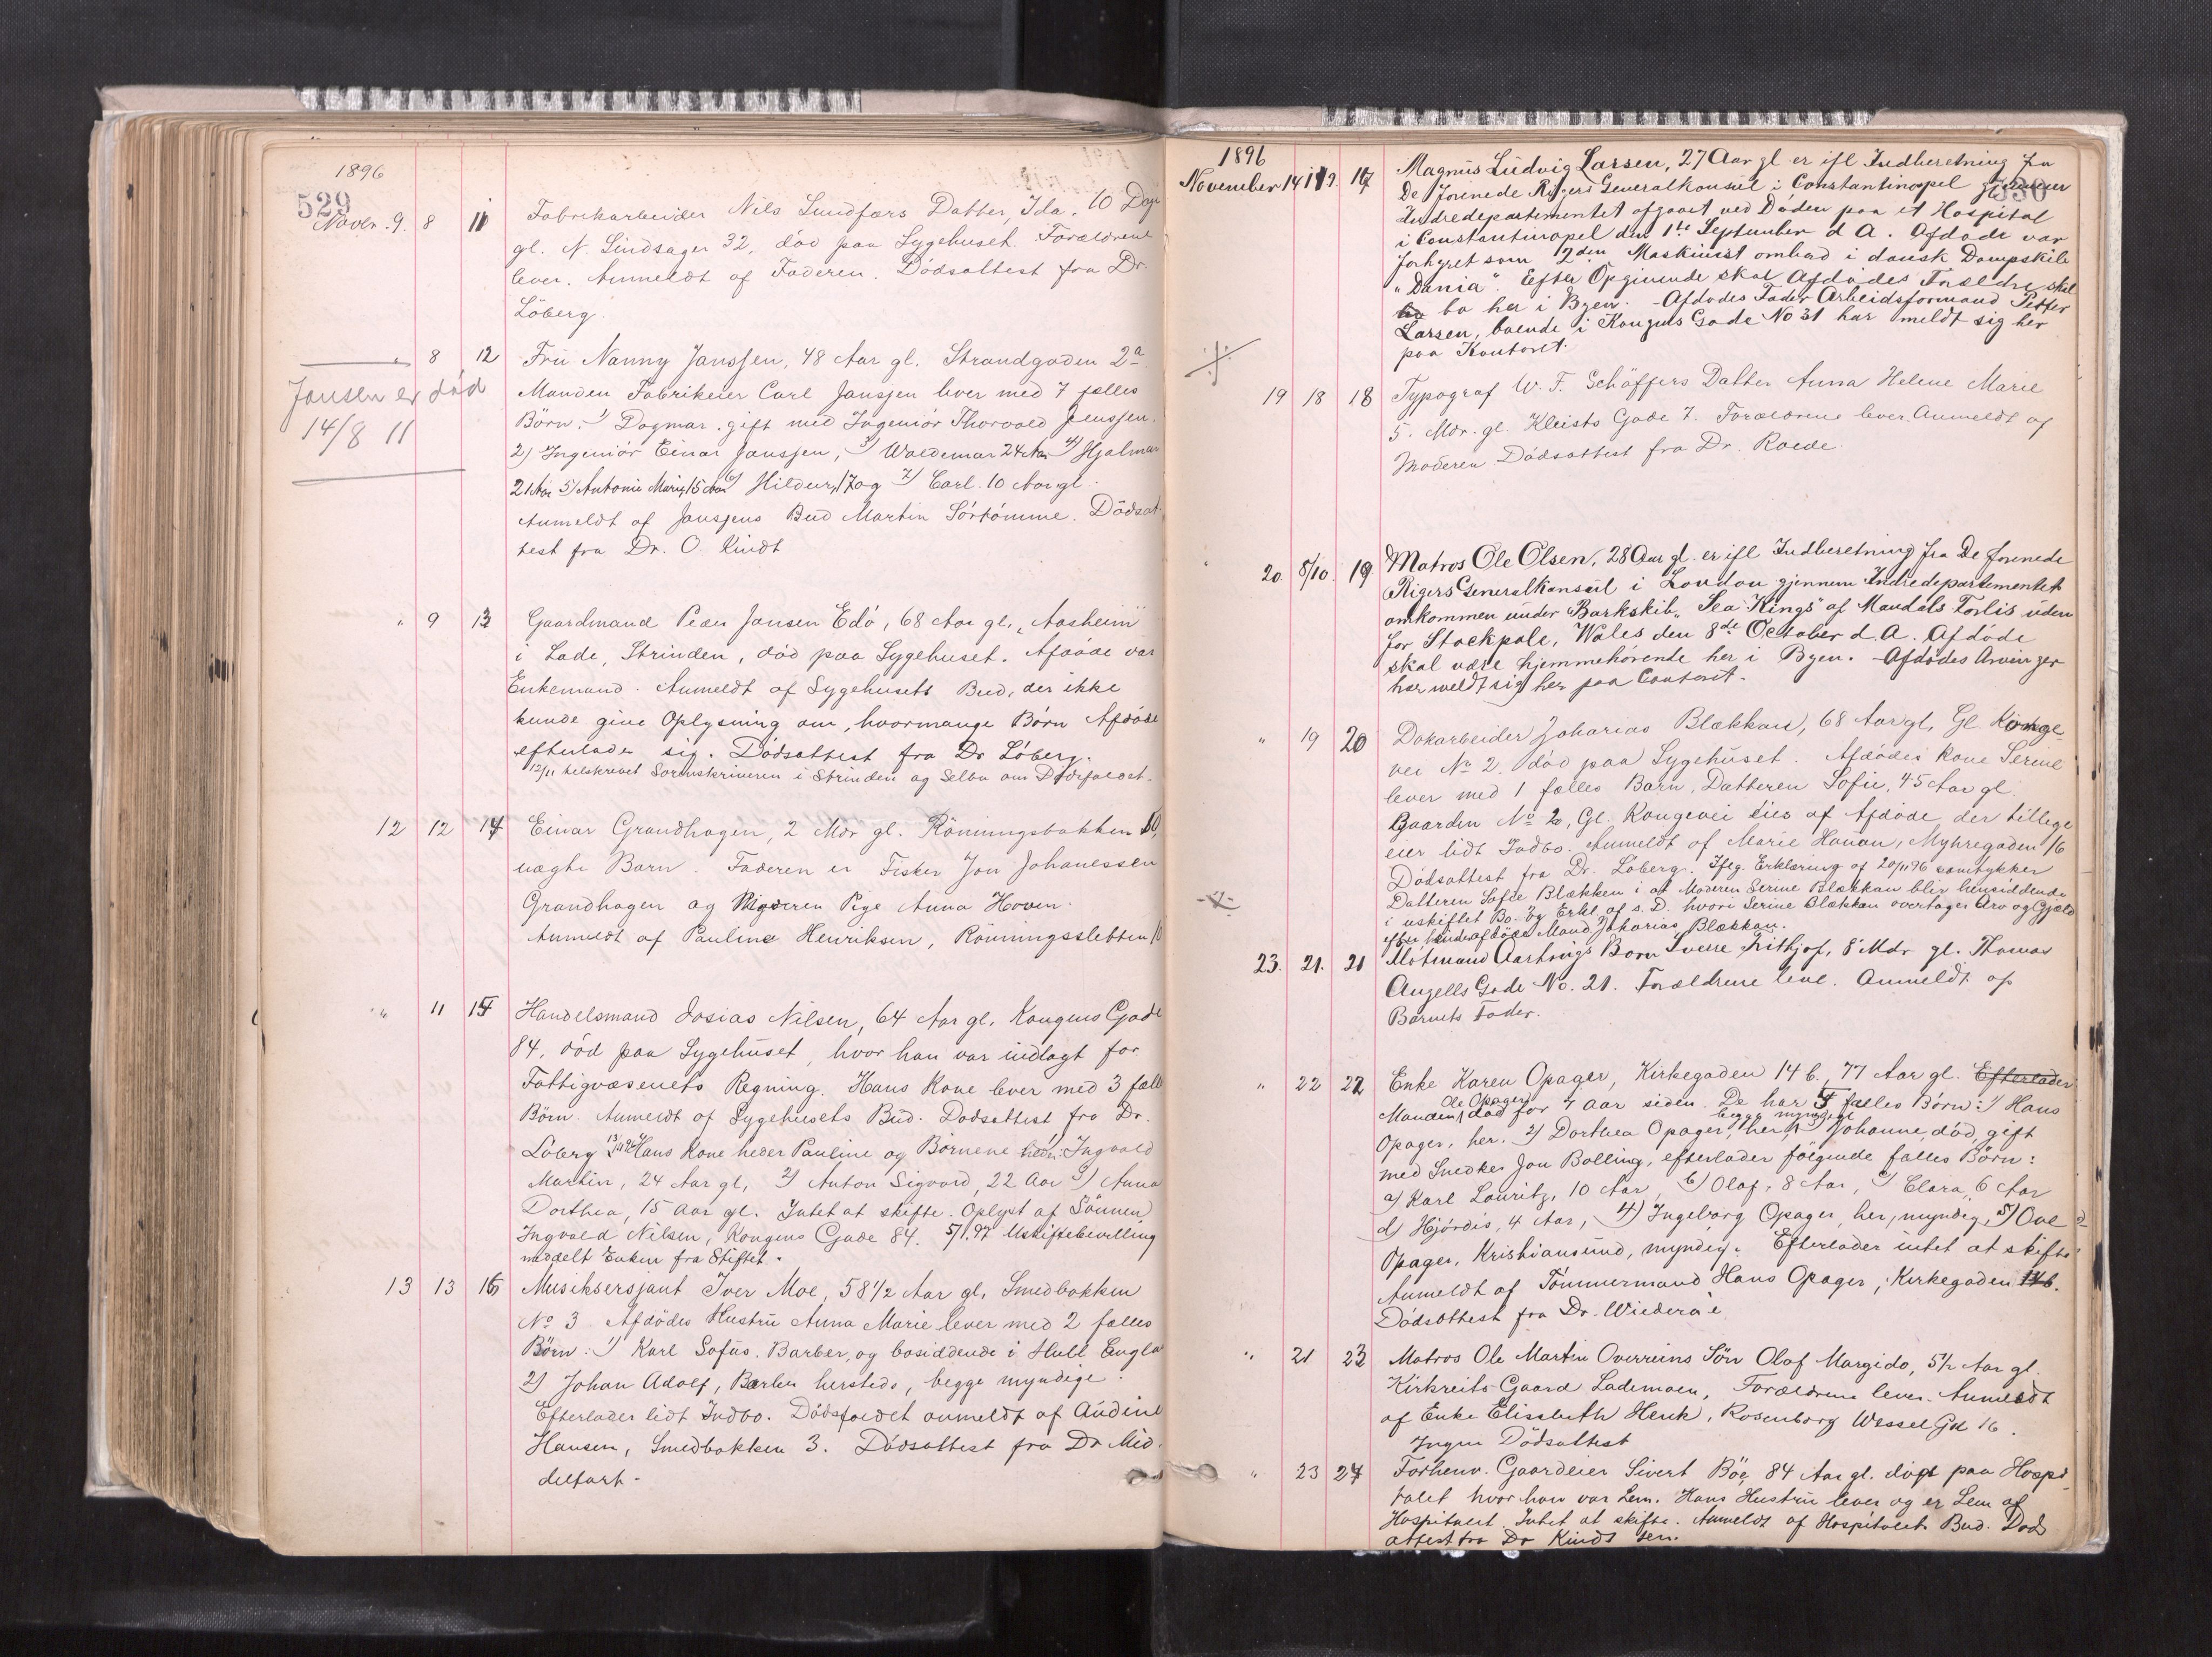 1896
529
Novbr. 9. 8 11 Fabrikarbeider Nils Sundfærs Datter, Ida, 10 Dage
gl. N. Lindsager 32, död paa Sygehuset. Forældrene
lever. Anmeldt af Faderen. Dödsattest fra Dr.
Löberg.
" 8 12 Fru Nanny Janssen, 48 Aar gl. Strandgaden 2a
Jansen er död
14/8 11
Manden Fabrikeier Carl Janssen lever med 7 fælles
Börn: 1) Dagmar, gift med Ingeniör Thorvald Jenssen.
2) Ingeniör Einar Janssen, 3) Waldemar 24 Aar 4) Hjalmar
21 Aar 5) Antonie Marie, 15 Aar 6) Hildur, 17 og 7) Carl. 10 Aar gl.
Anmeldt af Janssens Bud Martin Sörtömme. Dödsat-
test fra Dr. O. Kindt
" 9 13 Gaardmand Peder Jansen Edö, 68 Aar gl., "Aasheim"
i Lade, Strinden, död paa Sygehuset. Afdöde var
Enkemand. Anmeldt af Sygehusets Bud, der ikke
kunde give Oplysning om, hvormange Börn Afdöde
efterlader sig. Dödsattest fra Dr Löberg.
12/11 tilskrevet Sorenskriveren i Strinden og Selbu om Dödsfaldet.
12 12 14 Einar Grandhagen, 2 Mdr gl. Rönningsbakken 10,
uægte Barn. Faderen er Fisker Jon Johanessen
Grandhagen og Moderen Pige Anna Hoven.
Anmeldt af Pauline Henriksen, Rönningsletten 10
" 11 15 Handelsmand Josias Nilsen, 64 Aar gl. Kongens Gade
84, död paa Sygehuset, hvor han var indlagt for
Fattigvæsenets Regning. Hans Kone lever med 3 fæll
Börn. Anmeldt af Sygehusets Bud. Dödsattest fra Dr.
Löberg 13/11 96 Hans Kone heder Pauline og Börnene heder: Ingvald
Martin, 24 Aar gl, 2) Anton Sigvard, 22 Aar 3) Anna
Dorthea, 15 Aar gl. Intet at skifte. Oplyst af Sönnen
Ingvald Nilsen, Kongens Gade 84. 5/1.97 Uskiftebevilling
meddelt Enken fra Stiftet.
13 13 16 Musiksersjant Iver Moe, 58 1/2 Aar gl, Smedbakken
No 3. Afdödes Hustru Anna Marie lever med 2 fælles
Börn: 1) Karl Sofus. Barber, og bosiddende i Hull Engla
2) Johan Adolf, Barber hersteds, begge myndige.
Efterlader lidt Indbo. Dödsfaldet anmeldt af Audine
Hansen, Smedbakken 3. Dödsattest fra Dr Mid-
delfart.
1896
530
November 14 1/9. 17 Magnus Ludvig Larsen, 27 Aar gl er ifl Indberetning fra
De forenede Rigers Generalkonsul i Constantinopel gjennem
Indredepartementet afgaaet ved Döden paa et Hospital
i Constantinopel den 1te September d A. Afdöde var
forhyret som 2den Maskinist ombord i dansk Dampskib
"Dania". Efter Opgivende skal Afdödes Forældre skal
bo her i Byen. - Afdödes Fader Arbeidsformand Petter
Larsen, boende i Kongens Gade No 31 har meldt sig her
paa Kontoret.
19 18 18 Typograf W. F. Schäffers Datter Anna Helene Marie
5. Mdr. gl. Kleists Gade 7. Forældrene lever. Anmeldt af
Moderen Dödsattest fra Dr. Roede.
20. 8/10. 19 Matros Ole Olsen, 28 Aar gl. er ifl Indberetning fra De forenede
Rigers Generalkonsul i London gjennem Indredepartementet
omkommen under Barkskib "Sea Kings" af Mandals Forlis uden
for Stockpole, Wales den 8de October d.A. Afdöde
skal være hjemmehörende her i Byen. - Afdödes Arvinger
har meldt sig her paa Contoret.
" 19 20 Dokarbeider Johanias Blækkan, 68 Aar gl, Gl. Konge-
vei No 2, död paa Sygehuset. Afdödes Kone Serine
lever med 1 fælles Barn, Datteren Sofie, 45 Aar gl.
Gaarden No 2, Gl. Kongevei eies af Afdöde, der tillige
eier lidt Indbo. Anmeldt af Marie Hanan, Myhregaden 16
Dödsattest fra Dr. Löberg. Iflg. Erklæring af 20/11 96 samtykker
Datteren Sofie Blækken i at Moderen Serine Blækkan blir hensiddende
i uskiftet Bo. og Erkl. af s. D. hvori Serine Blækkan overtager Arv og Gjæld
efter hendes afdöde Mand Johanias Blækkan.
23. 21. 21 Motmand Aarhaugs Barn Sverre Fritjof, 8 Mdr gl. Thomas
Angells Gade No. 21. Forældrene leve. Anmeldt af
Barnets Fader.
" 22 22 Enke Karen Opager, Kirkegaden 14 b, 77 Aar gl. Efterlader
Manden, Ole Opager, död for 7 Aar siden. De har 5 fælles Börn: 1) Hans
Opager, her. 2) Dorthea Opager, her, begge myndige 3) Johanne, död, gift
med Snedker Jon Bolling, efterlader fölgende fælles Börn:
a) Karl Lauritz, 10 Aar, b) Olaf, 8 Aar, c) Clara, 6 Aar
d) Hjördis, 4 Aar, 4) Ingeborg Opager, her, myndig, 5) Ove
Opager, Kristiansund, myndig. Efterlader intet at skifte.
Anmeldt af Tömmermand Hans Opager, Kirkegaden 14b.
Dödsattest fra Dr. Wideröe
" 21 23 Matros Ole Martin Overreins Sön Olaf Margido, 5 1/2 Aar gl.
Kirkreits Gaard Lademoen, Forældrene lever. Anmeldt
af Enke Elisabeth Henk, Rosenborg Wessel Gd 16.
Ingen Dödsattest
" 23 24 Forhenv. Gaardeier Sivert Böe, 84 Aar gl. död paa Hospi-
talet hvor han var Lem. Hans Hustru lever og er Lem af
Hospitalet. Intet at skifte. Anmeldt af Hospitalets Bud. Döds
attest fra Dr Kindt sen.